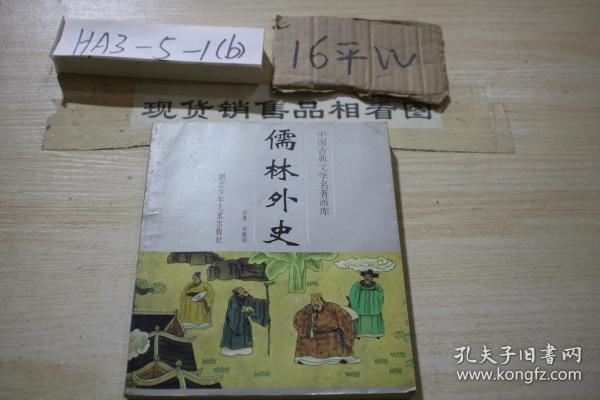 HA3-5-1(b)
16平W
现货销售品相看图
中国古典文学名著画库
儒林外史
原著 吴敬梓
湖北少年儿童出版社
孔夫子旧书网
www.kongfz.com